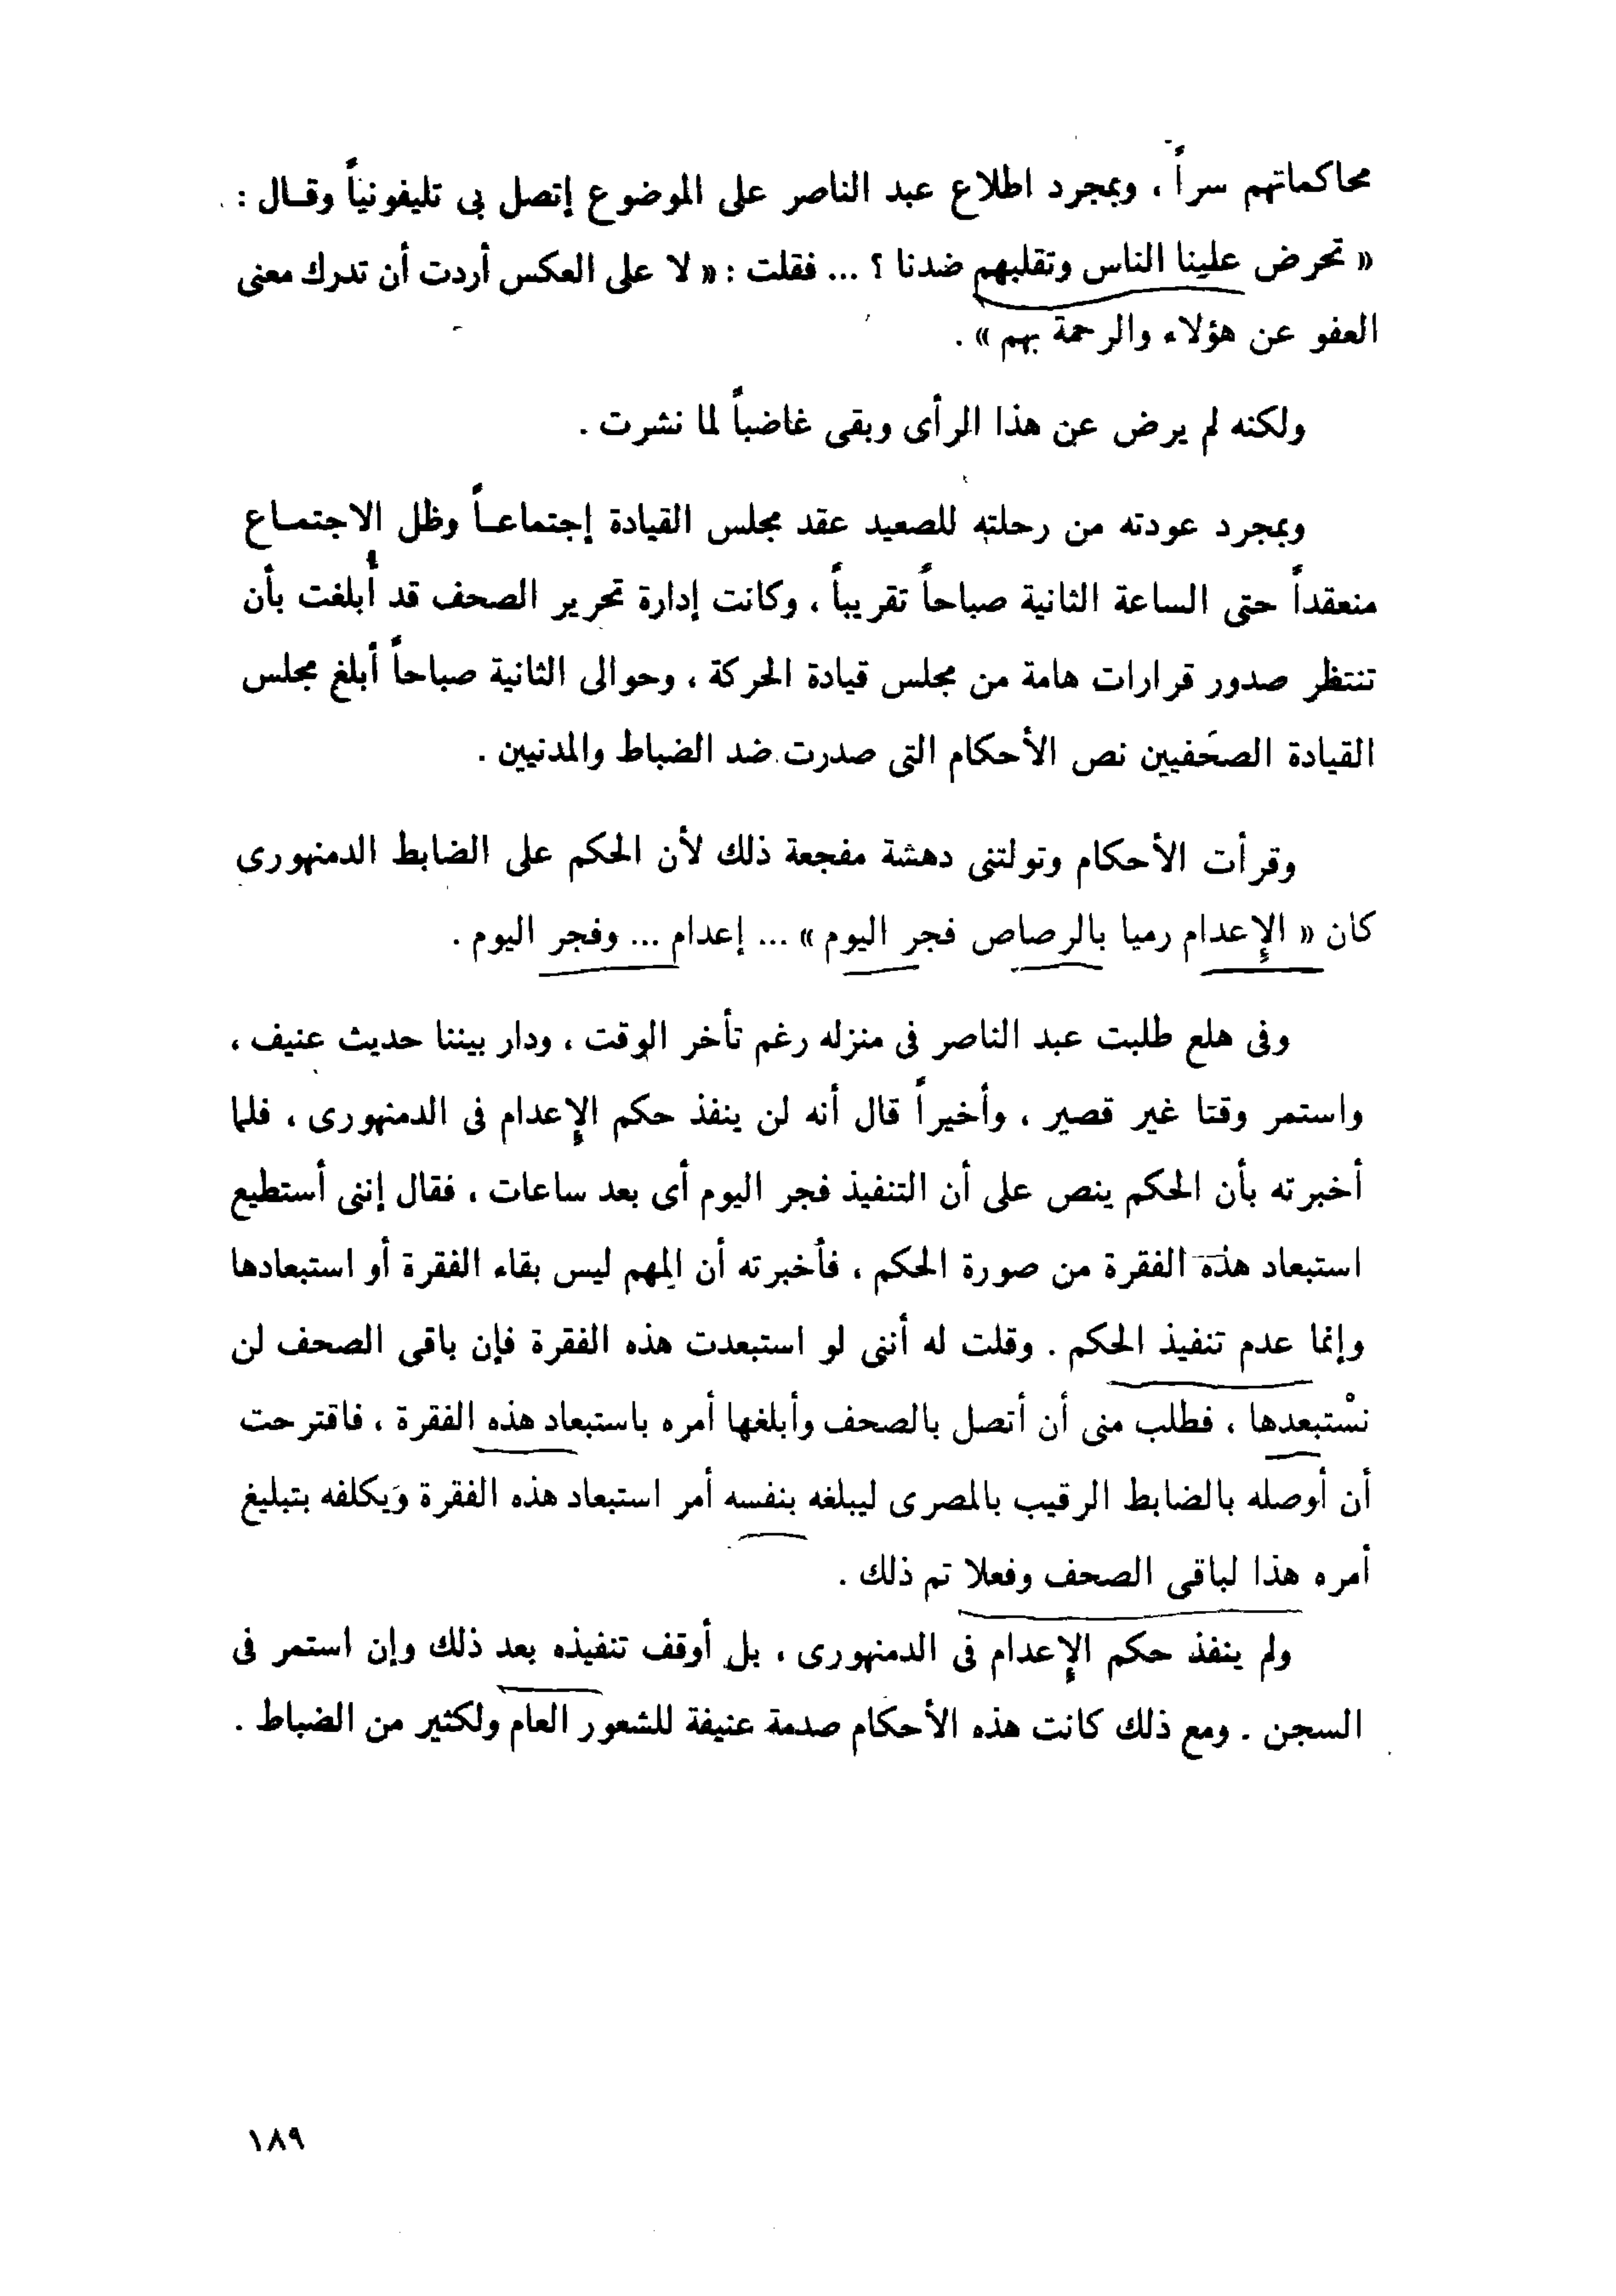 محاكماتهم سراً ، وبمجرد اطلاع عبد الناصر على الموضوع إتصل بى تليفونياً وقـال :
« تحرض علينا الناس وتقلبهم ضدنا ؟ ... فقلت : « لا على العكس أردت أن تدرك معنى
العفو عن هؤلاء والرحمة بهم » .
ولكنه لم يرض عن هذا الرأى وبقى غاضباً لما نشرت .
وبمجرد عودته من رحلته للصعيد عقد مجلس القيادة إجتماعـاً وظل الاجتمـاع
منعقداً حتى الساعة الثانية صباحاً تقريباً ، وكانت إدارة تحرير الصحف قد أبلغت بأن
تنتظر صدور قرارات هامة من مجلس قيادة الحركة ، وحوالى الثانية صباحاً أبلغ مجلس
القيادة الصحفيين نص الأحكام التى صدرت ضد الضباط والمدنيين .
وقرأت الأحكام وتولتنى دهشة مفجعة ذلك لأن الحكم على الضابط الدمنهورى
كان « الإعدام رميا بالرصاص فجر اليوم » ... إعدام ... وفجر اليوم .
وفى هلع طلبت عبد الناصر فى منزله رغم تأخر الوقت ، ودار بيننا حديث عنيف ،
واستمر وقتا غير قصير ، وأخيراً قال أنه لن ينفذ حكم الإعدام فى الدمنهورى ، فلما
أخبرته بأن الحكم ينص على أن التنفيذ فجر اليوم أى بعد ساعات ، فقال إننى أستطيع
استبعاد هذه الفقرة من صورة الحكم ، فأخبرته أن المهم ليس بقاء الفقرة أو استبعادها
وإنما عدم تنفيذ الحكم . وقلت له أننى لو استبعدت هذه الفقرة فإن باقى الصحف لن
نسْتبعدها ، فطلب منى أن أتصل بالصحف وأبلغها أمره باستبعاد هذه الفقرة ، فاقترحت
أن أوصله بالضابط الرقيب بالمصرى ليبلغه بنفسه أمر استبعاد هذه الفقرة وَيكلفه بتبليغ
أمره هذا لباقى الصحف وفعلا تم ذلك .
ولم ينفذ حكم الإعدام فى الدمنهورى ، بل أوقف تنفيذه بعد ذلك وإن استمر فى
السجن . ومع ذلك كانت هذه الأحكام صدمة عنيفة للشعور العام ولكثير من الضباط .
١٨٩